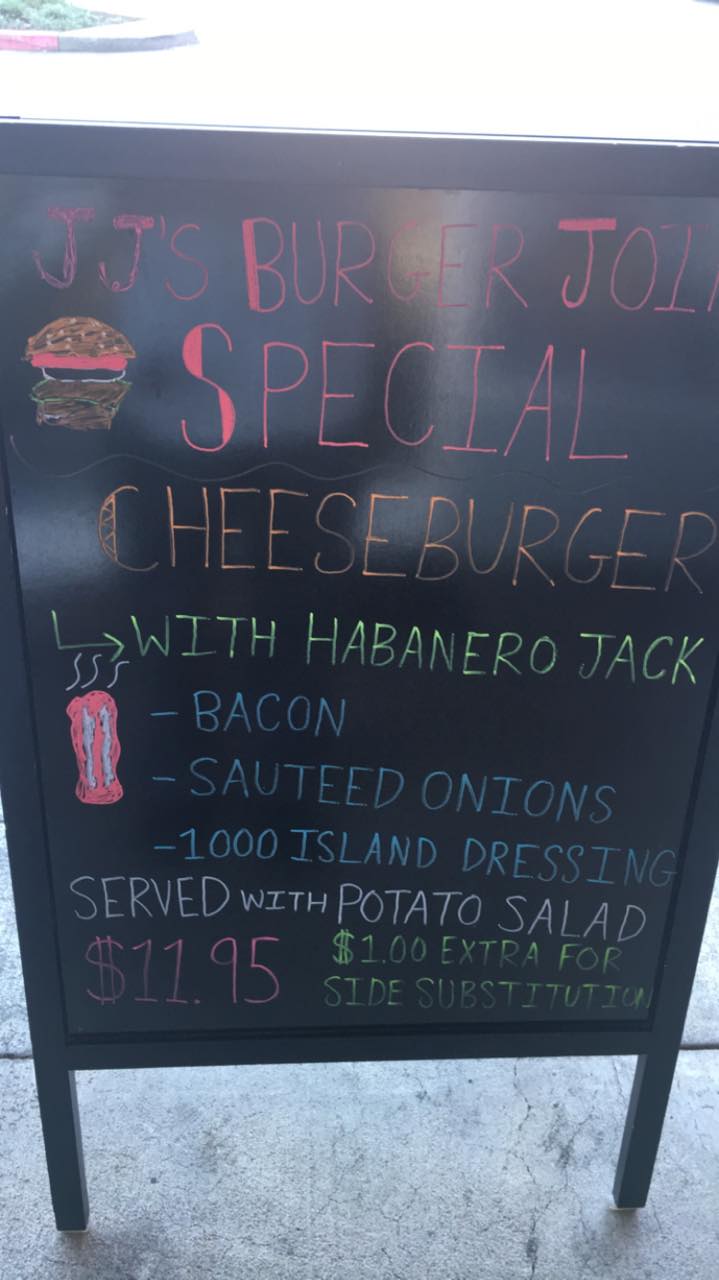 JJ'S BURGER JOI
SPECIAL
CHEESEBURGER
WITH HABANERO JACK
- BACON
- SAUTEED ONIONS
- 1000 ISLAND DRESSING
SERVED WITH POTATO SALAD
$11.95
$1.00 EXTRA FOR
SIDE SUBSTITUTION